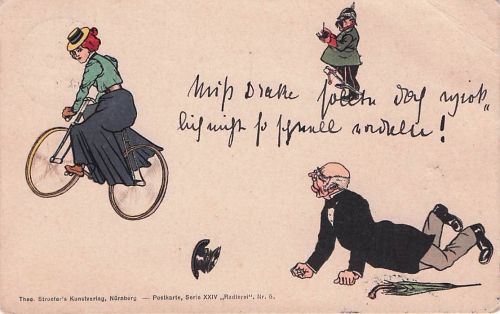 Miß Drake sollte doch wirk„
lich nicht so schnell radeln!
Theo. Stroefer's Kunstverlag, Nürnberg — Postkarte, Serie XXIV „Radlerei", Nr. 5.